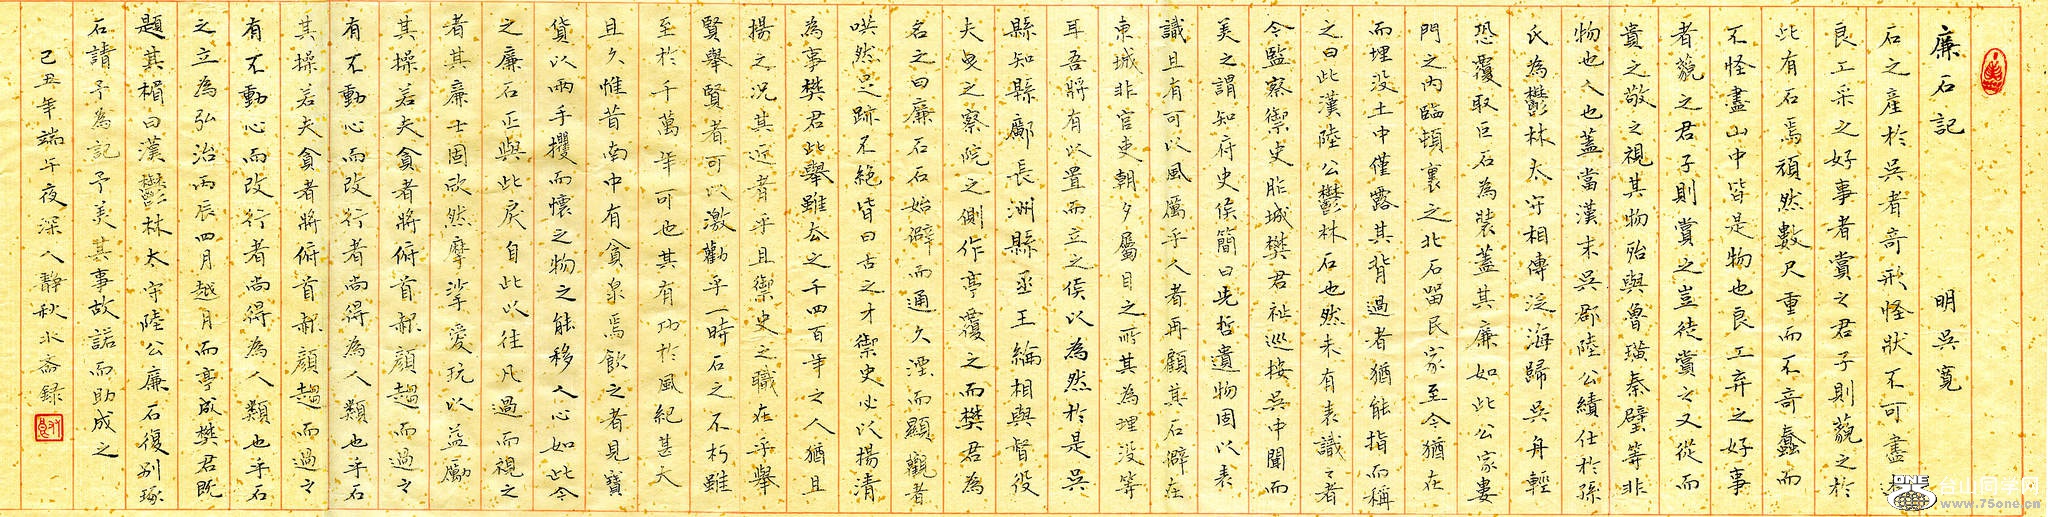 廉石記　明吳寬
石之產於吳者奇形怪狀不可盡
良工采之好事者賞之君子則藐之於
此有石焉頑然數尺重而不奇蠢而
不怪盡山中皆是物也良工弃之好事
者藐之君子則賞之豈徒賞之又從而
貴之敬之視其物殆與魯璜秦璧等非
物也人也蓋當漢末吳郡陸公績仕於孫
氏為鬱林太守相傳泛海歸吳舟輕
恐覆取巨石為裝蓋其廉如此公家婁
門之內臨頓裏之北石留民家至今猶在
而埋没土中僅露其背過者猶能指而稱
之曰此漢陸公鬱林石也然未有表識之者
令監察御史胙城樊君祉巡按吳中聞而
美之謂知府史侯簡曰先哲遺物固以表
識且有可以風厲乎人者再顧其石僻在
東城非官吏朝夕屬目之所其為埋没等
耳吾將有以置而立之侯以為然於是吳
縣知縣鄺長洲縣丞王綸相與督役
夫曳之察院之側作亭覆之而樊君為
名之曰廉石石始僻而通久湮而顯觀者
哄然足跡不絶皆曰古之才御史必以揚清
為事樊君此舉雖去之千四百年之人猶且
揚之况其近者乎且御史之職在乎舉
賢舉賢者可以激勸乎一時石之不朽雖
至於千萬年可也其有功於風紀甚大
且久惟昔南中有貪泉焉飲之者見寶
貨以兩手攫而懷之物之能移人心如此今
之廉石正與此戾自此以往凡過而視之
者其廉士固欣然摩挲愛玩以益勵
其操若夫貪者將俯首赧顏趨而過之
有不動心而改行者尚得為人類也乎石
其操若夫貪者將俯首赧顏趨而過之
有不動心而改行者尚得為人類也乎石
之立為弘治丙辰四月越月而亭成樊君既
題其楣曰漢鬱林太守陸公廉石復别琢
石請予為記予美其事故諾而助成之
己丑年端午夜深人靜秋水斋録
台山国学网
www.75one.cn
ONE